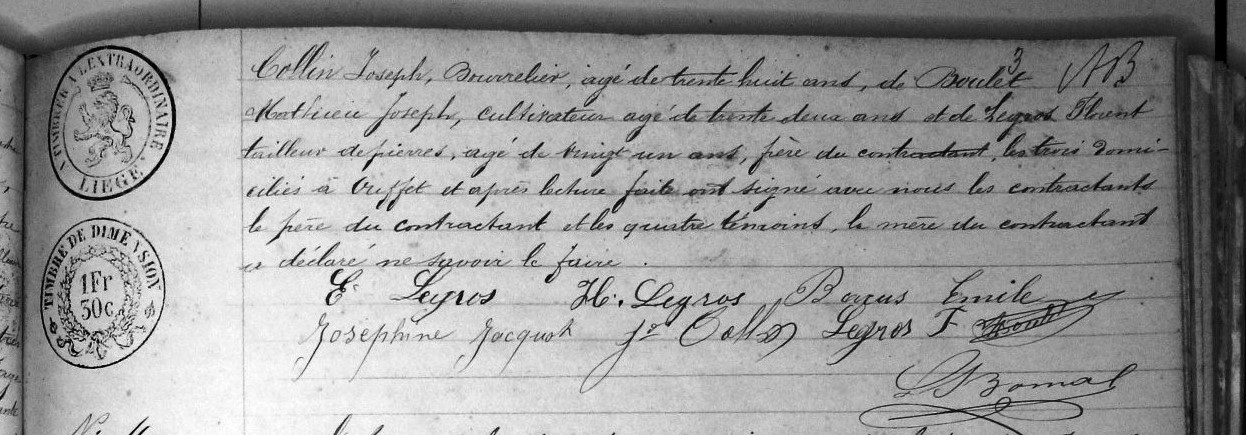 3 AB
Collin Joseph, Bourrelier, agé de trente huit ans, de Boulet
Mathieu Joseph, cultivateur agé de trente deux ans et de Legros Florent
tailleur de pierres, agé de vingt un ans, frère du contractant, les trois domi-
ciliés à Ouffet et après lecture faite ont signé avec nous les contractants
le père du contractant et les quatre témoins, la mère du contractant
a déclaré ne savoir le faire.
E. Legros H. Legros Bacus Emile
Joséphine Jacquot Jh Collin Legros F Boulet
Bomal
TIMBRER A L'EXTRAORDINAIRE
LIEGE
TIMBRE DE DIMENSION
1Fr
30c